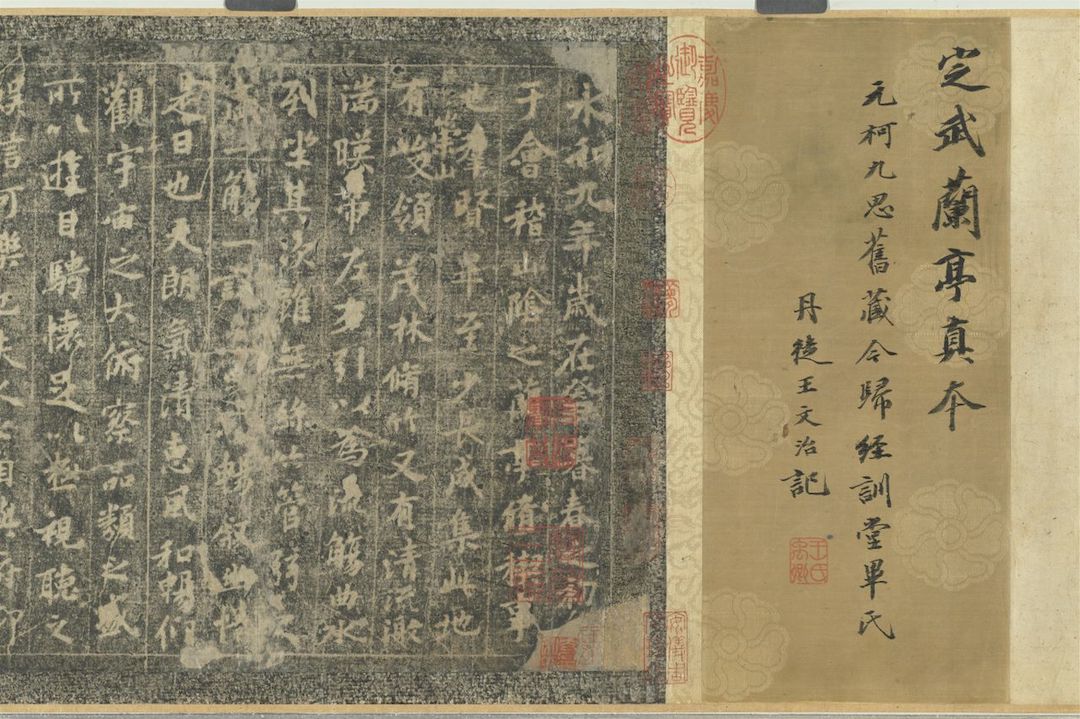 定武蘭亭真本
元柯九思舊藏今歸經訓堂畢氏
丹徒王文治記
王氏禹卿
嘉慶御覽之寶
永和九年歲在癸暮春之初
于會稽山陰之蘭亭脩稧事
也羣賢畢至少長咸集此地
有崇山峻領茂林脩竹又有清流激
湍暎帶左右引以為流觴曲水
列坐其次雖無絲竹管弦之
盛一觴一詠亦足以暢叙幽情
是日也天朗氣清惠風和暢仰
觀宇宙之大俯察品類之盛
所以遊目騁懷足以極視聽之
娛信可樂也夫人之相與俯仰